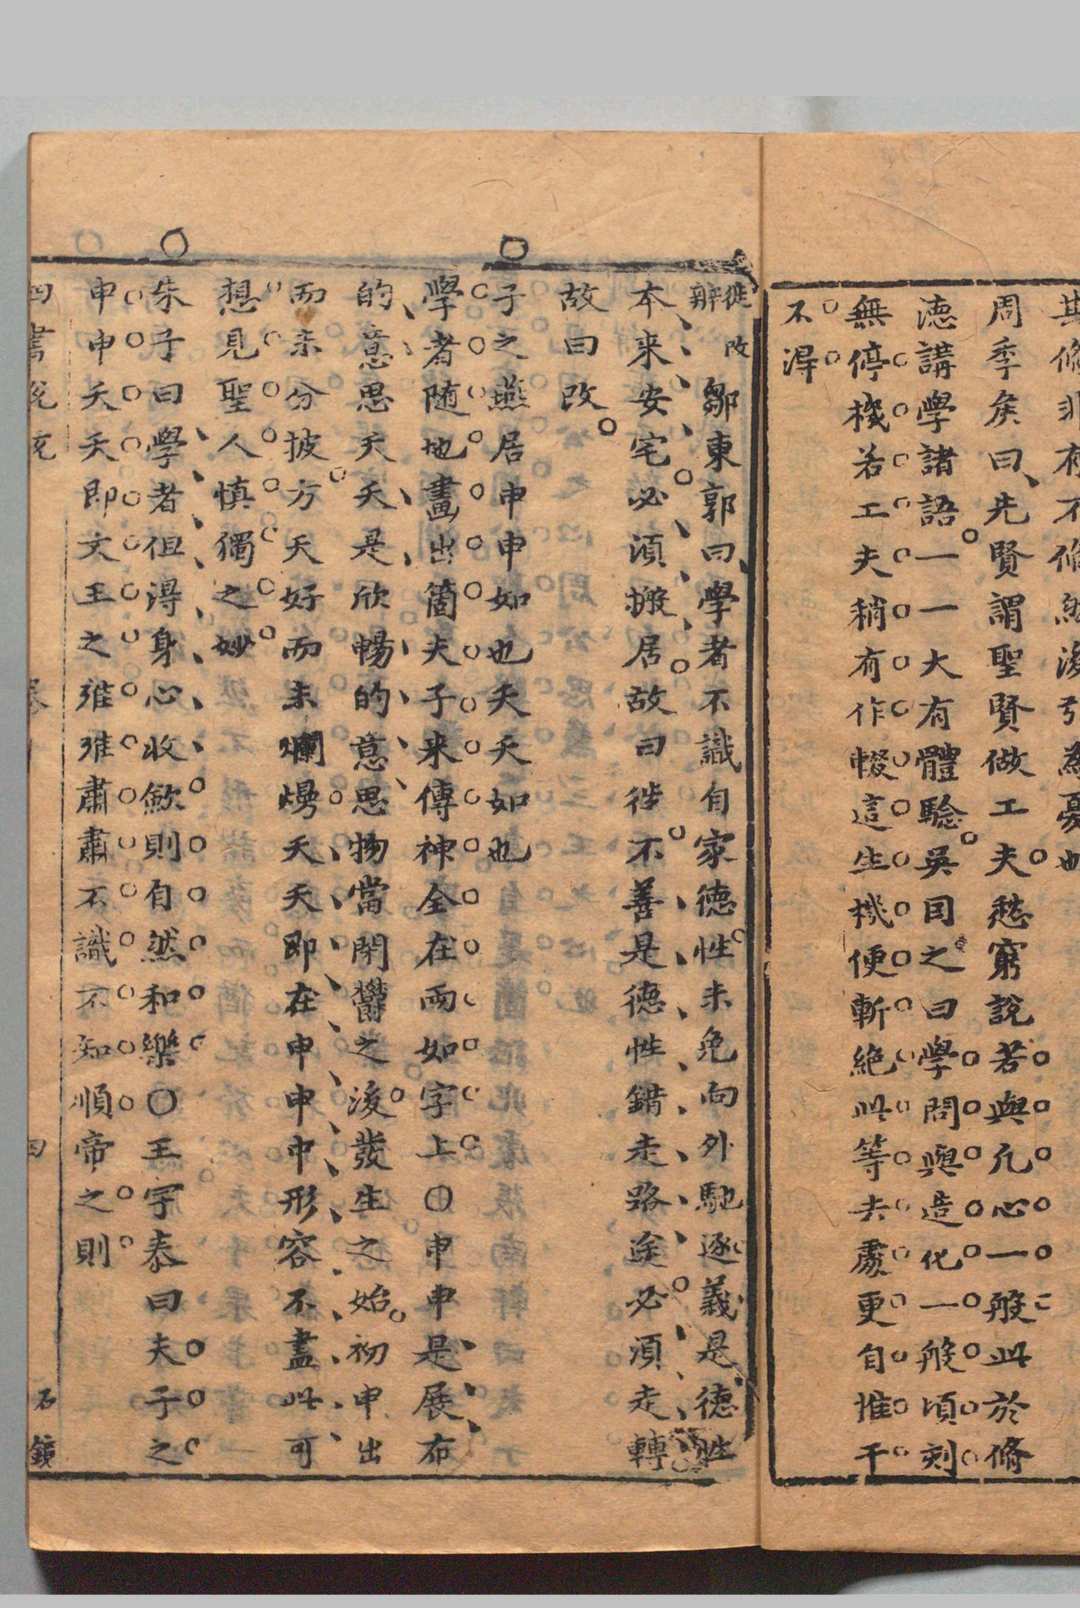 其脩非有不脩然後引為憂也
周季矦曰先賢謂聖賢做工夫愁窮說若與凢心一般此於脩
德講學諸語一一大有體驗吳因之曰學問與造化一般頃刻
無停機若工夫稍有作輟這生機便斬絶此等去處更自推干
不淂
徙改辨
鄒東郭曰學者不識自家德性未免向外馳逐義是德性
本来安宅必湏搬居故曰徙不善是德性錯走路途必湏走轉
故曰改
子之燕居申申如也夭夭如也
學者随地畫出箇夫子来傳神全在兩如字上〇申申是展布
的意思夭夭是欣暢的意思物當閉欝之後發生之始初申出
而未分披方夭好而未爛熳夭夭即在申申中形容不盡此可
想見聖人慎獨之妙
朱子曰學者但淂身心收斂則自然和樂〇王宇泰曰夫子之
申申夭夭即文王之雝雝肅肅不識不知順帝之則
四書說
四
石鏡